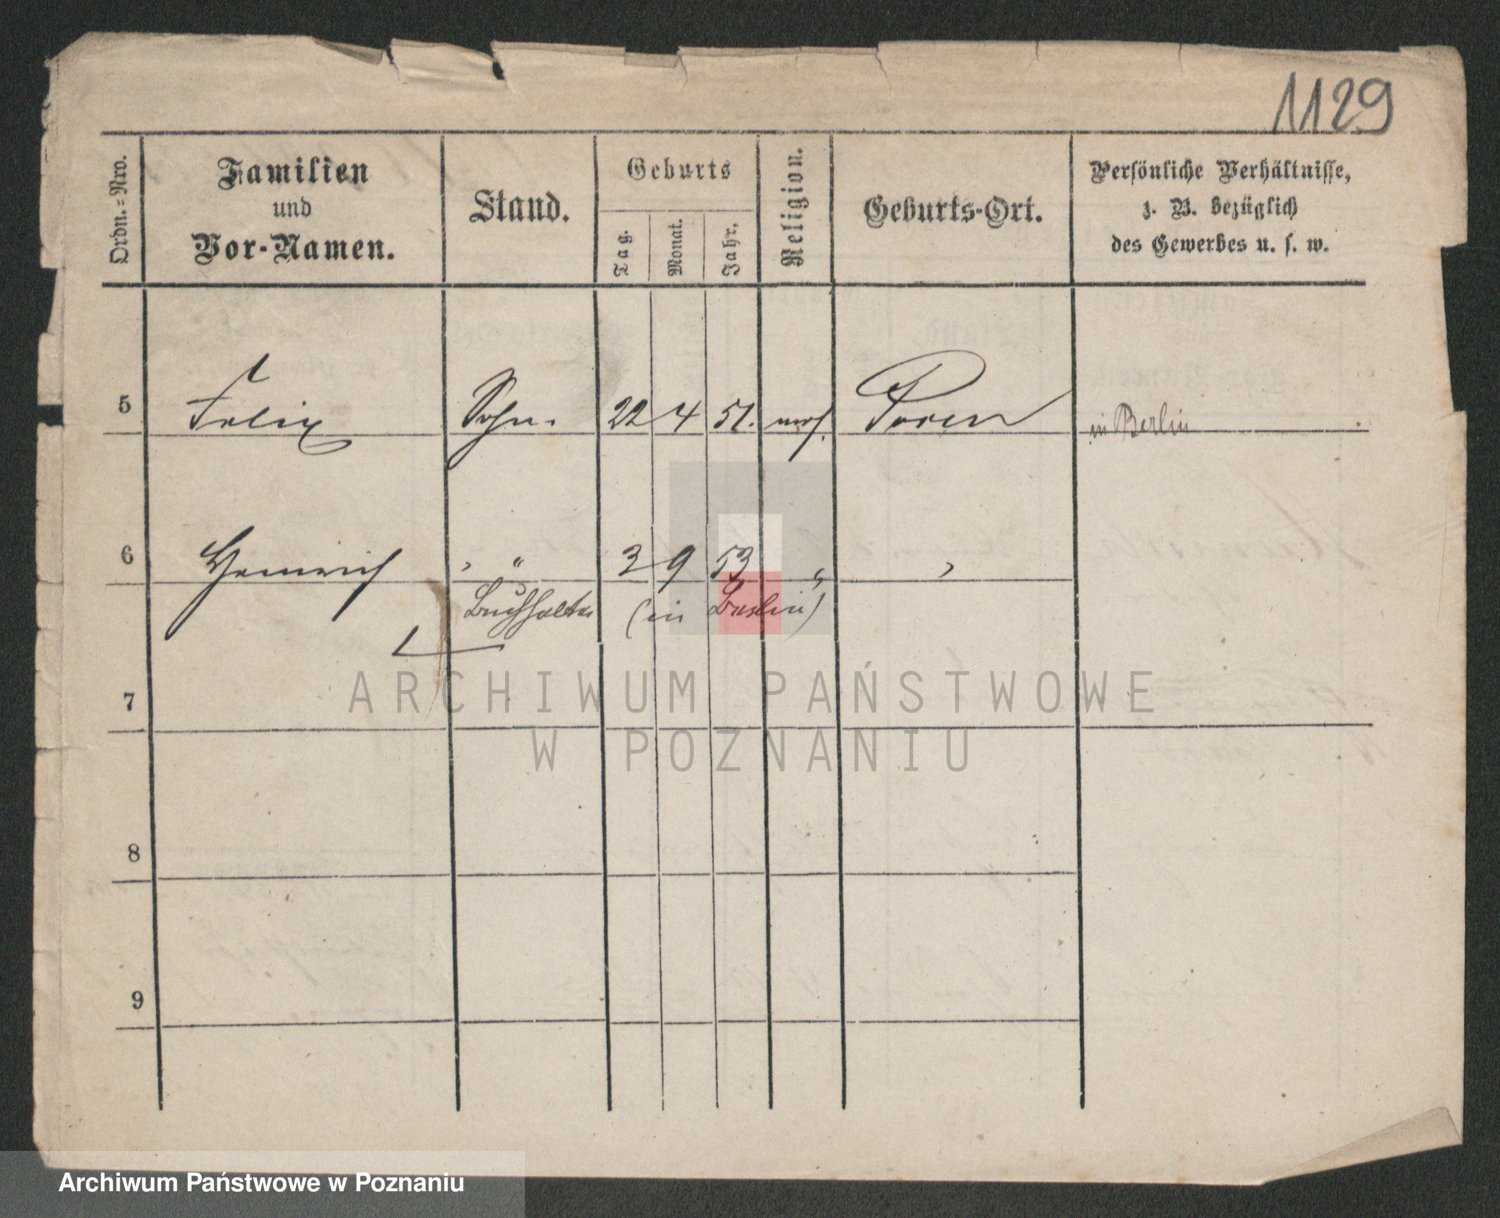 1129
Ordn.=Nro.
Familien
und
Vor-Namen.
Stand.
Geburts
Tag.
Monat.
Jahr.
Religion.
Geburts-Ort.
Persönliche Verhältnisse,
z. B. bezüglich
des Gewerbes u. s. w.
5 Felix Sohn. 22 4 51. mos. Posen in Berlin
6 Heinrich " 3 9 53 " "
Buchhalter (in Berlin)
7
ARCHIWUM PAŃSTWOWE
W POZNANIU
8
9
Archiwum Państwowe w Poznaniu